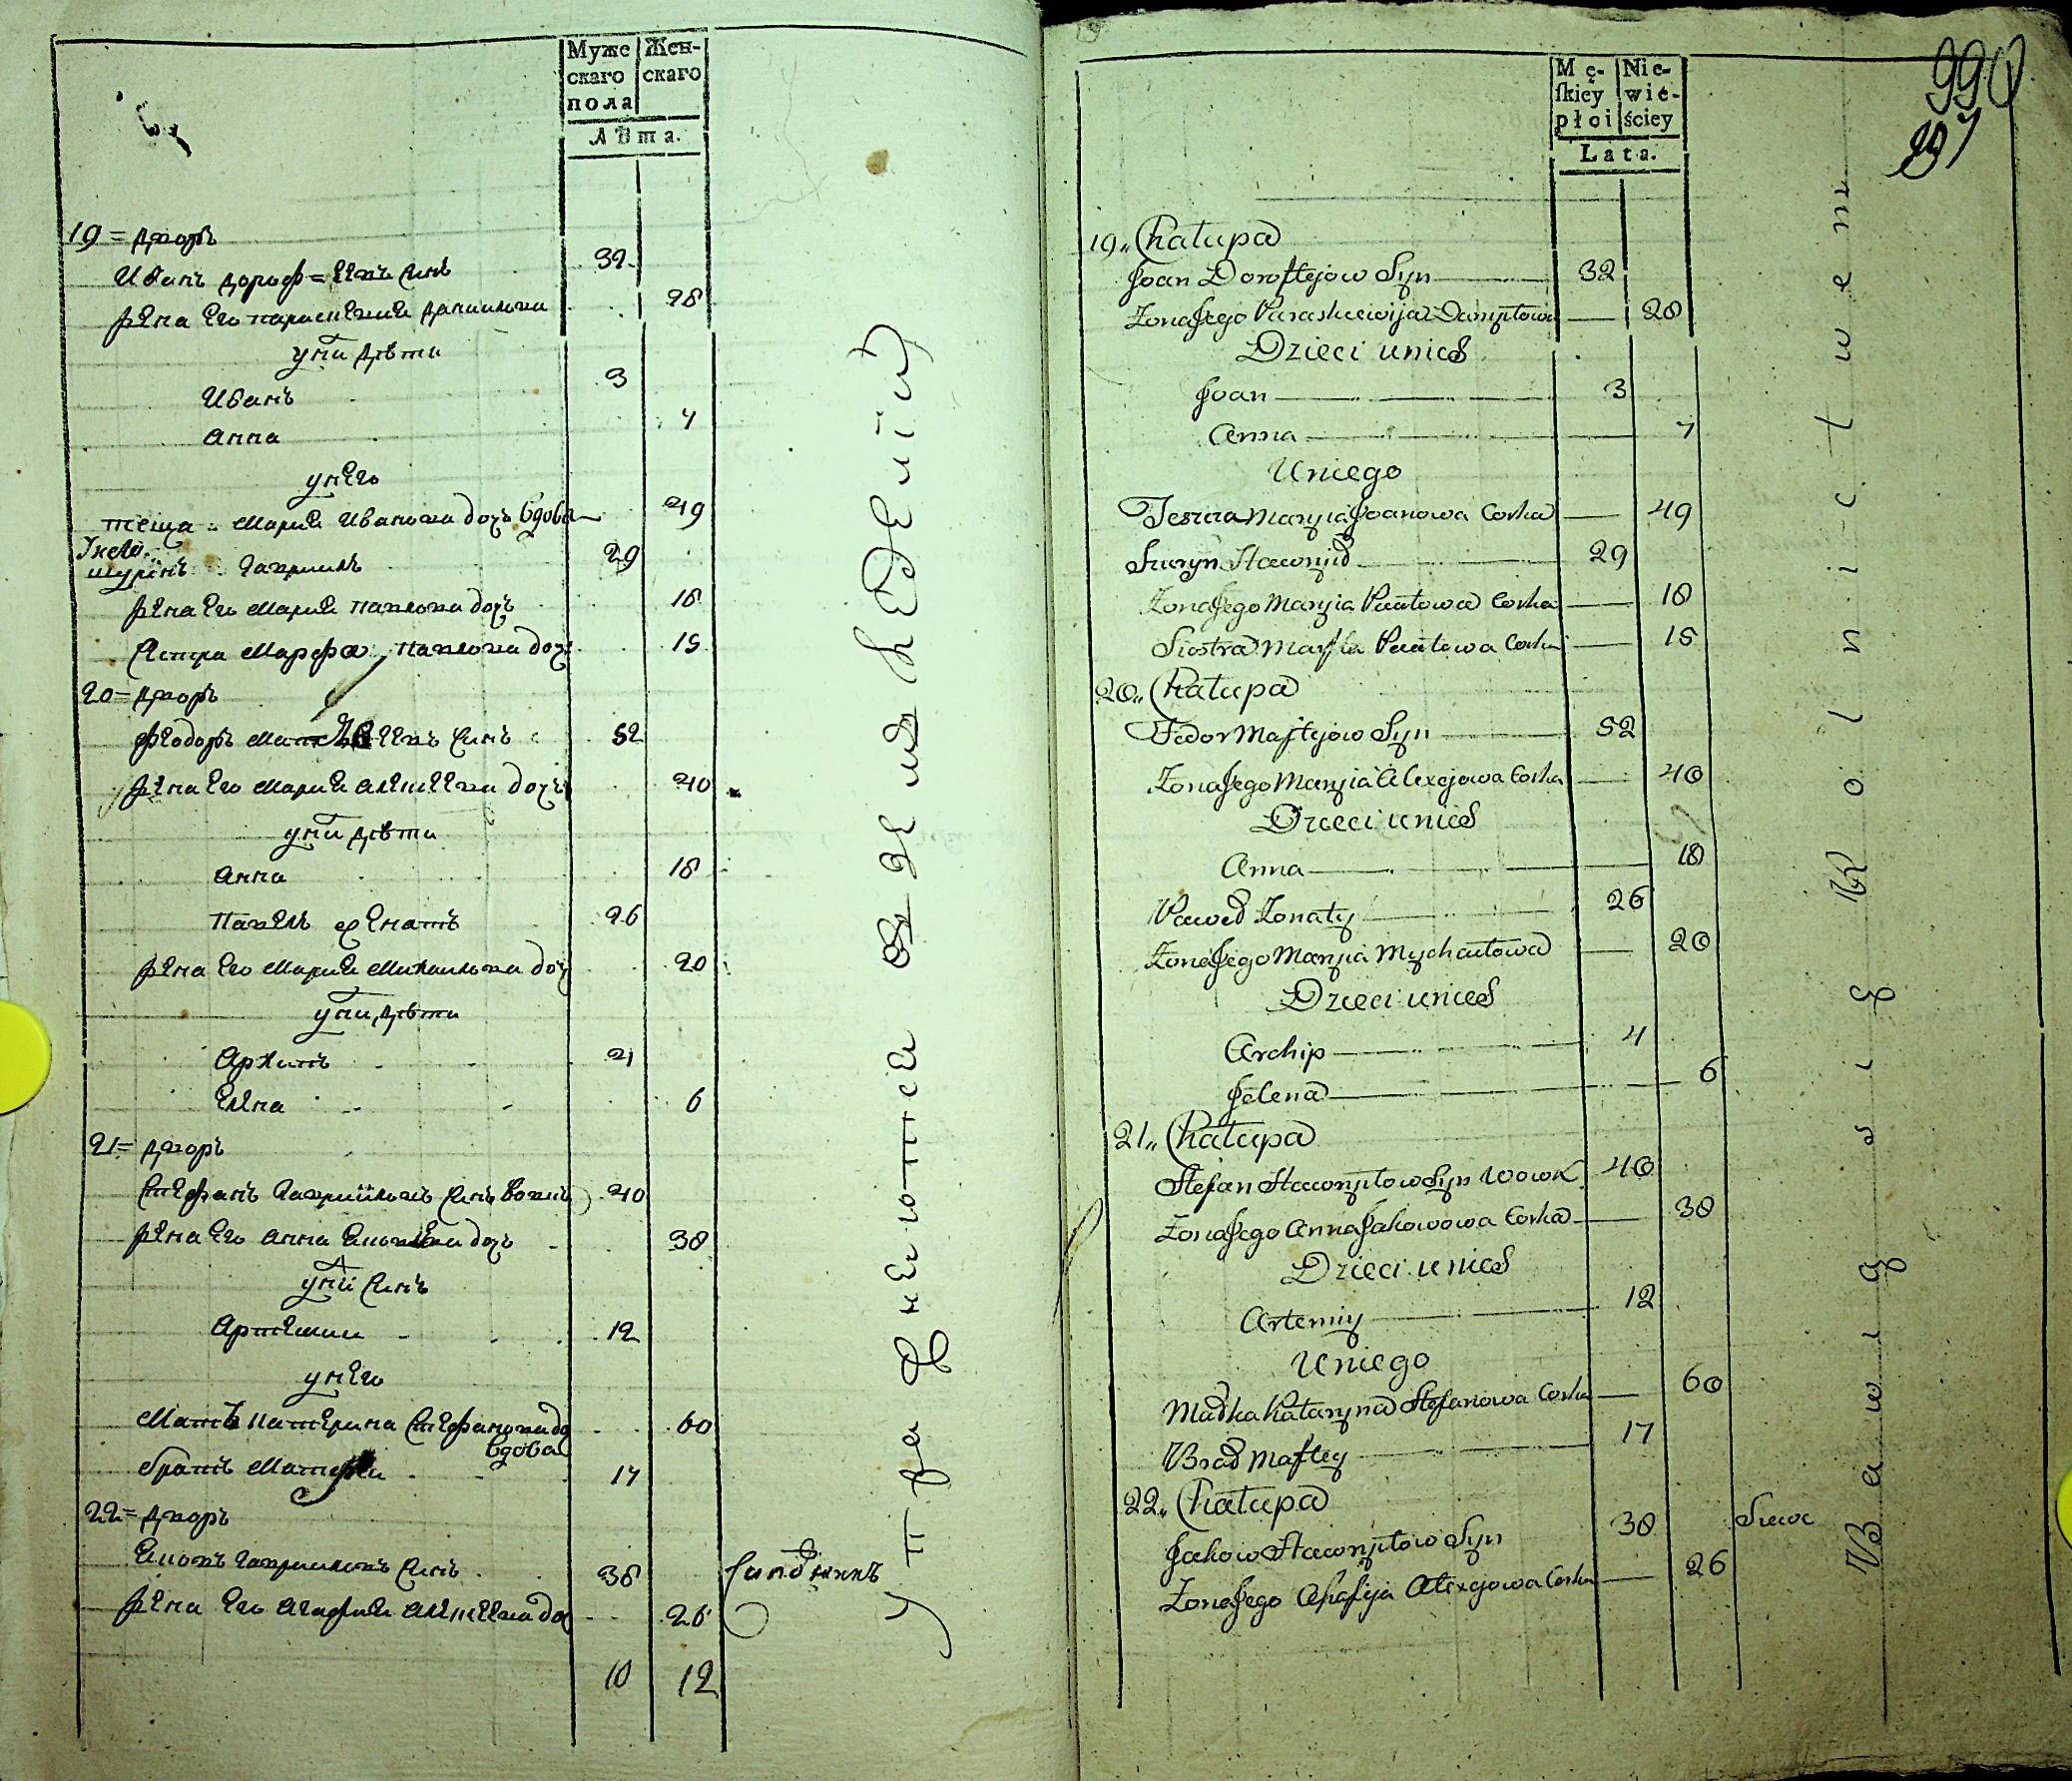 Муже
скаго
пола
Жен-
скаго
лѣта.
19 = дворъ
Иванъ Дороф=еевъ синъ 32
жена его Параскевия Даниилова 28
у нй дѣти
Иванъ 3
Анна 4
у него
теща Мария Иванова доч вдова 49
шуринъ Гавриилъ 29
жена его Мария Павлова доч 18
сестра Марфа Павлова доч 15
20 = дворъ
Феодоръ Матѳеевъ синъ 52
жена его Мария Алексеева доч 40
у нй дѣти
Анна 18
Павелъ женатъ 26
жена его Мария Михаилова доч 20
у нй дѣти
Архипъ 4
Елена 6
21 = дворъ
Стефанъ Гавриіловъ синъ Вовкъ 40
жена его Анна Яковлева доч 38
у нй синъ
Артемии 12
у него
мать Катерина Стефанова до
вдова 60
братъ Матѳеи 17
22 = дворъ
Яковъ Гавриловъ синъ 38
жена его Агафия Алексеева до 26
10 12
упражняются въ земледелїи
Mę-
ſkiey
płci
Nie-
wie-
ściey
Lata.
990
19„ Chałupa
Joan Doroftejow Syn 32
Zona Jego Paraskiewija Danyłowa 28
Dzieci unich
Joan 3
Anna 4
Uniego
Teszcza Maryia Joanowa Corka 49
Szuryn Hawryił 29
Zona Jego Maryia Pawłowa Corka 18
Siostra Marfta Pawłowa Corka 15
20„ Chałupa
Fedor Maftejow Syn 52
Zona Jego Maryia Alexejowa Corka 40
Dzieci unich
Anna 18
Paweł Zonaty 26
Zona Jego Maryia Mychaiłowa 20
Dzieci unich
Archip 4
Jelena 6
21„ Chałupa
Stefan Hawryłow Syn Wowk 40
Zona Jego Anna Jakowowa Corka 38
Dzieci unich
Artemiy 12
Uniego
Matka Kataryna Stefanowa Corka 60
Brat Maftey 17
22„ Chałupa
Jakow Hawryłow Syn 38
Zona Jego Ahafija Alexejowa Corka 26
Bawią się Rolnictwem